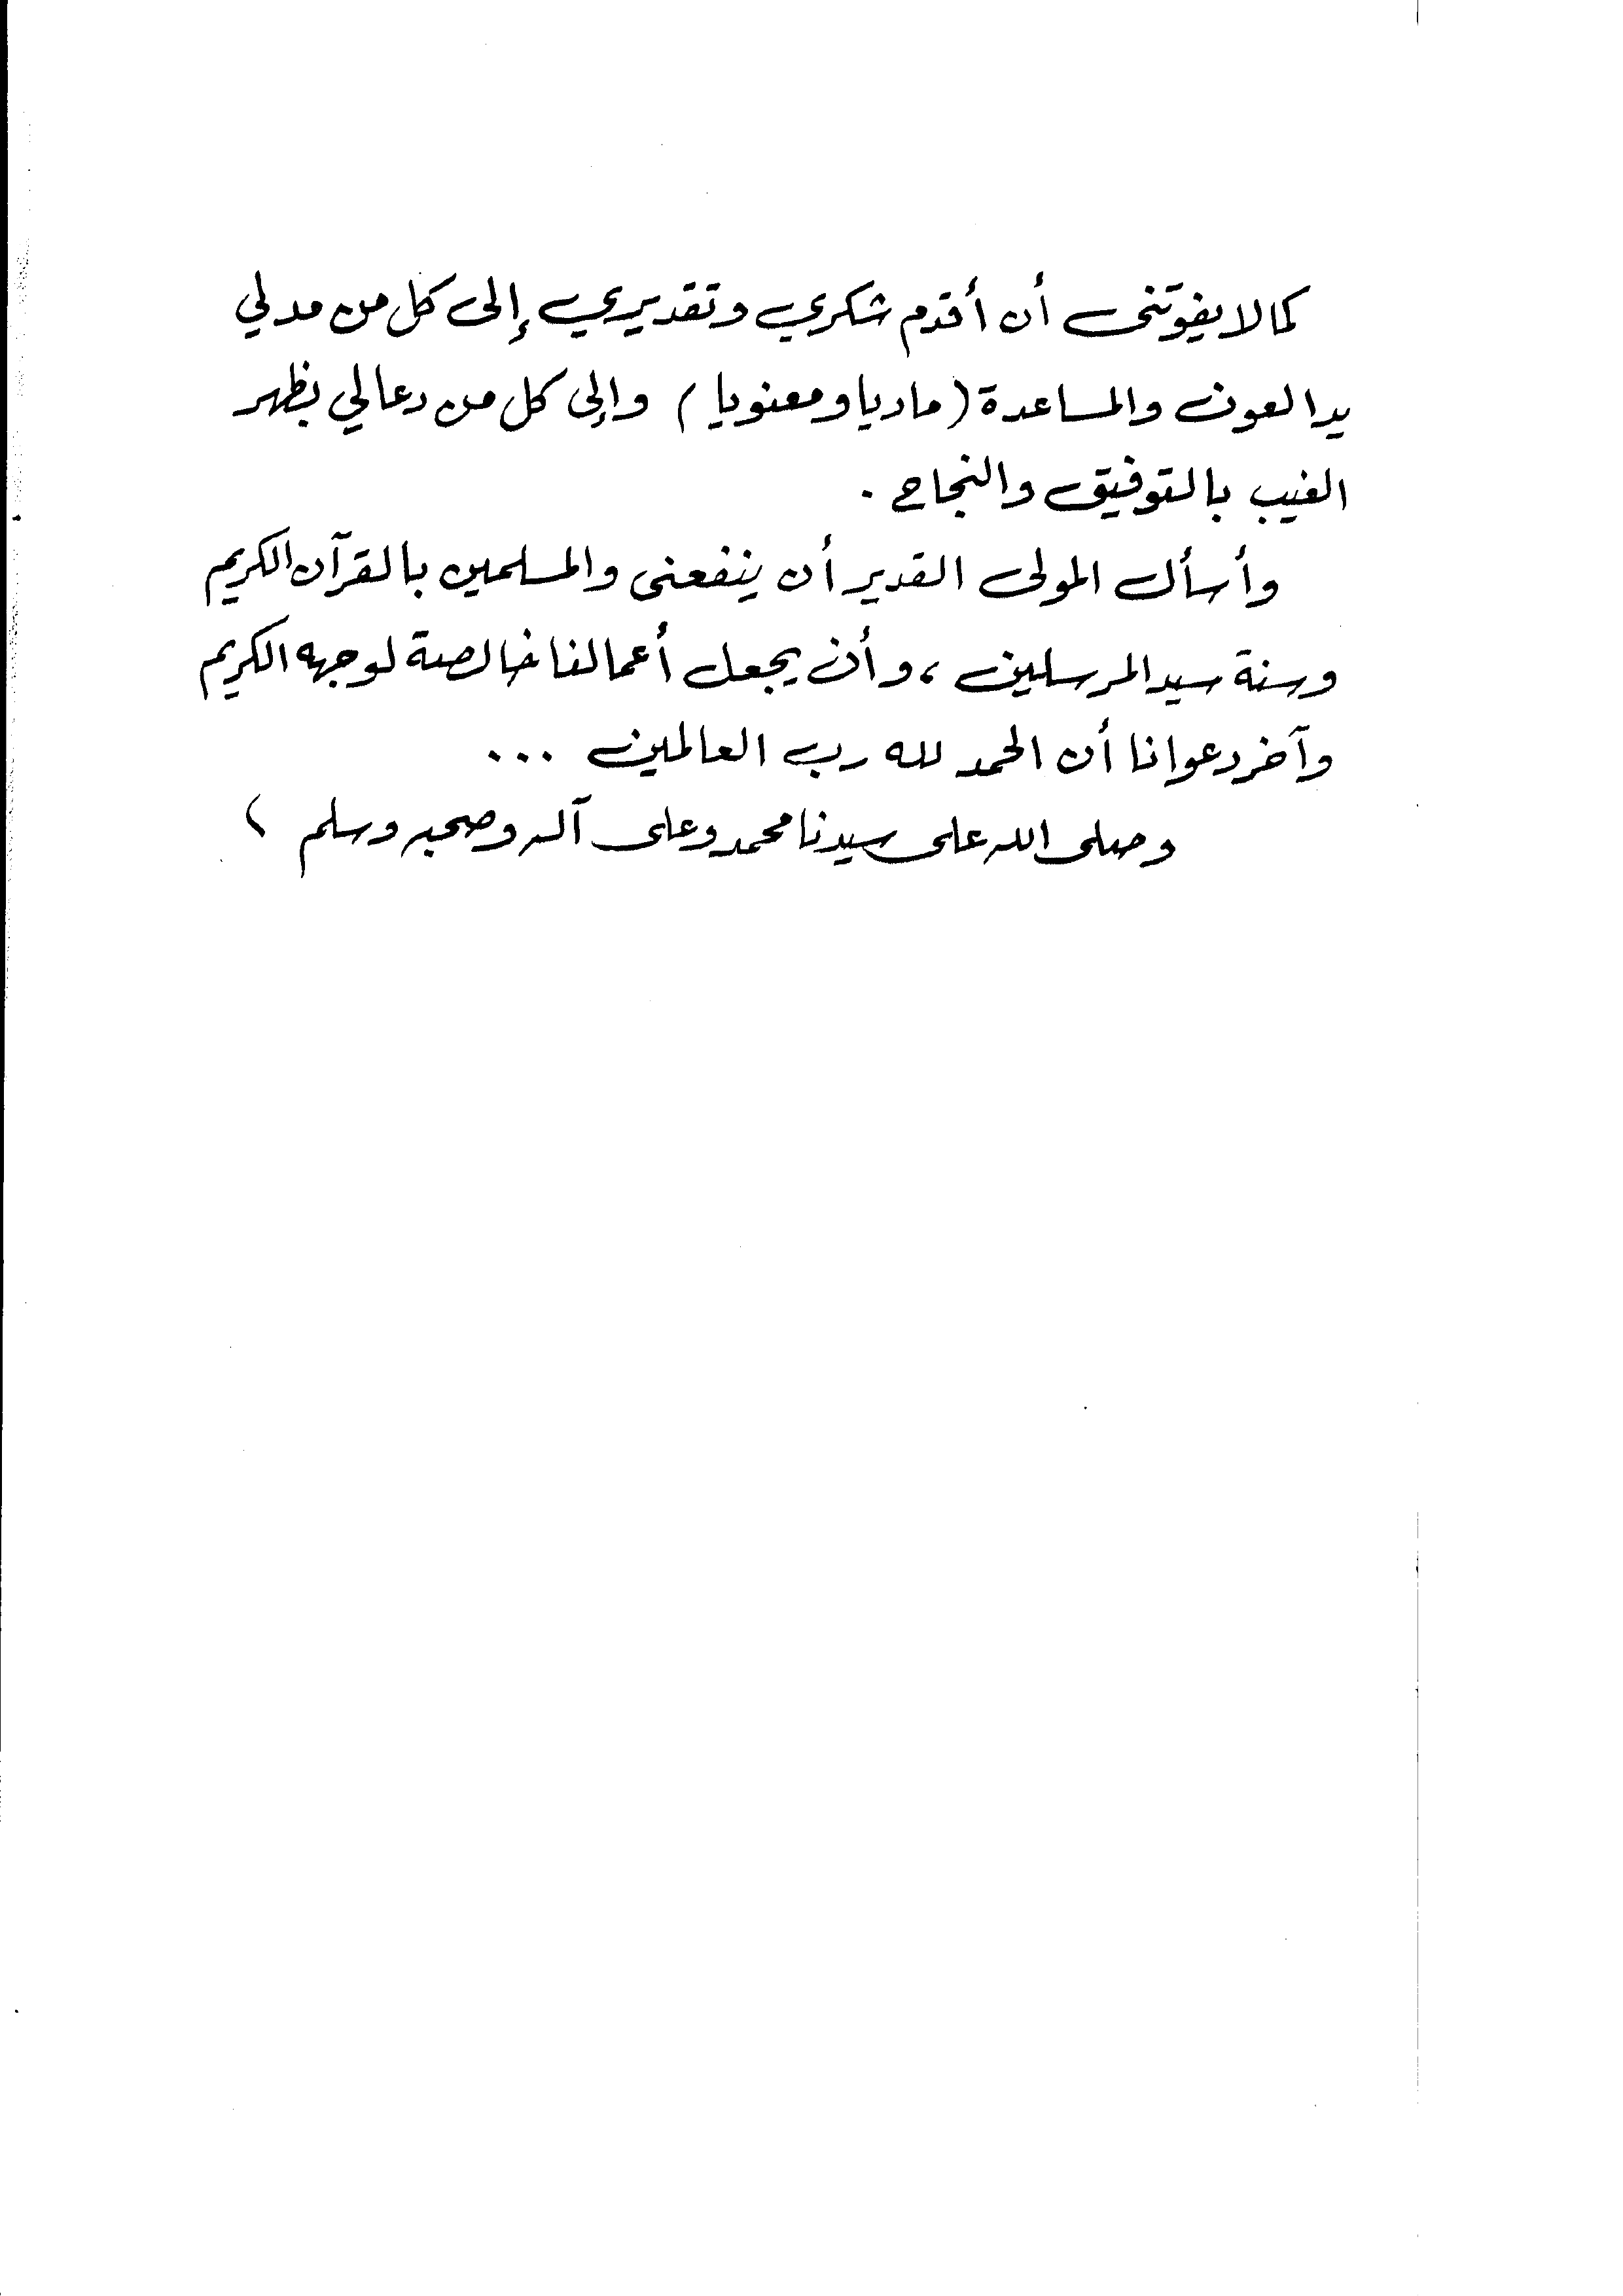 كما لا يفوتنى أن أقدم شكري وتقديري إلى كل من مد لي
يد العون والمساعدة (ماديا ومعنويا) وإلى كل من دعا لي بظهر
الغيب بالتوفيق والنجاح .
وأسأل المولى القدير أن ينفعنى والمسلمين بالقرآن الكريم
وسنة سيد المرسلين ، وأن يجعل أعمالنا خالصة لوجهه الكريم
وآخر دعوانا أن الحمد لله رب العالمين ...
وصلى الله على سيدنا محمد وعلى آله وصحبه وسلم ،